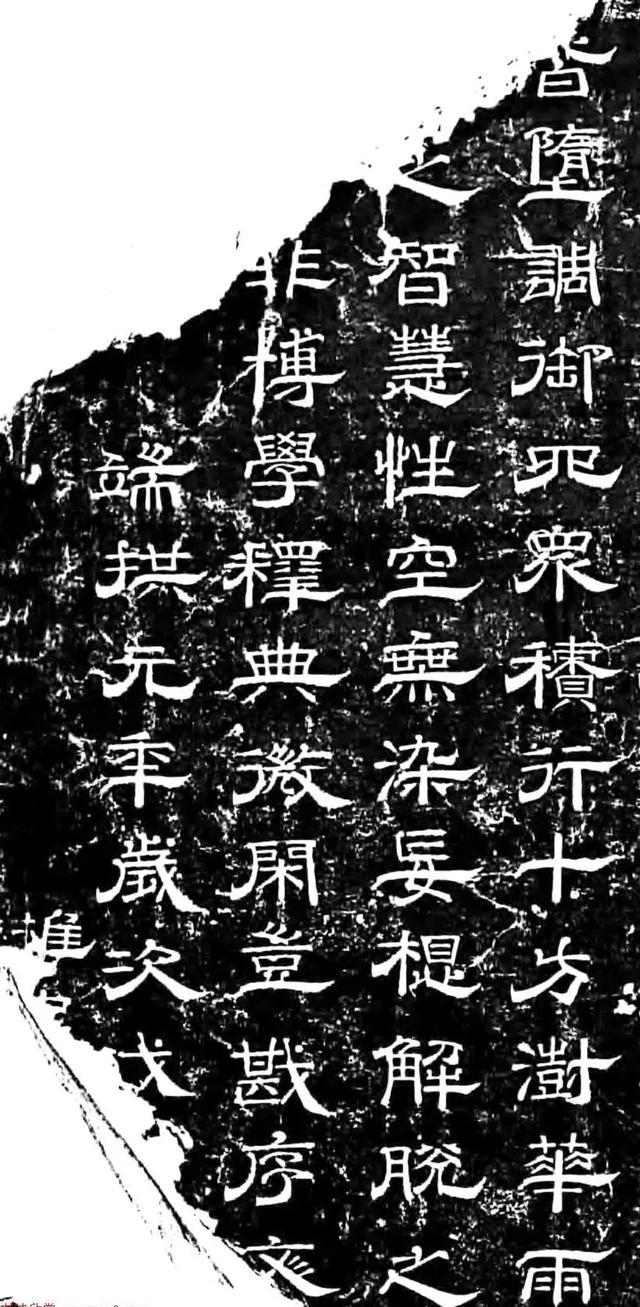 墮調御四眾積行十方澍華雨
之智慧性空無染妄想解脫之
非博學釋典微閑豈戡序文
端拱元年歲次